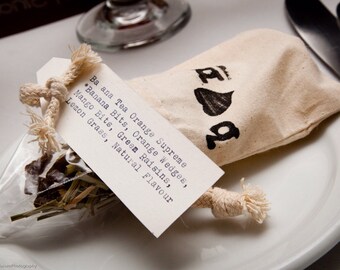 Ba ana Tea Orange Supreme
*Banana Bits, Orange Wedges,
Mango Bits, Green Raisins,
Lemon Grass, Natural Flavour